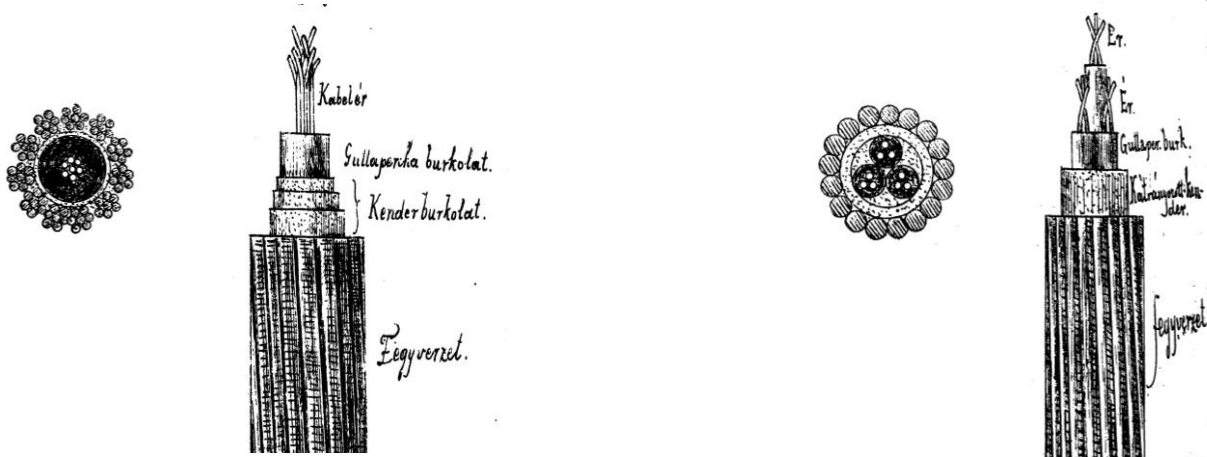 Kabelér
Guttapercha burkolat.
Kenderburkolat.
Fegyverzet.
Ér.
Ér.
Guttaper. burk.
Kátrányozott ken-
der.
fegyverzet